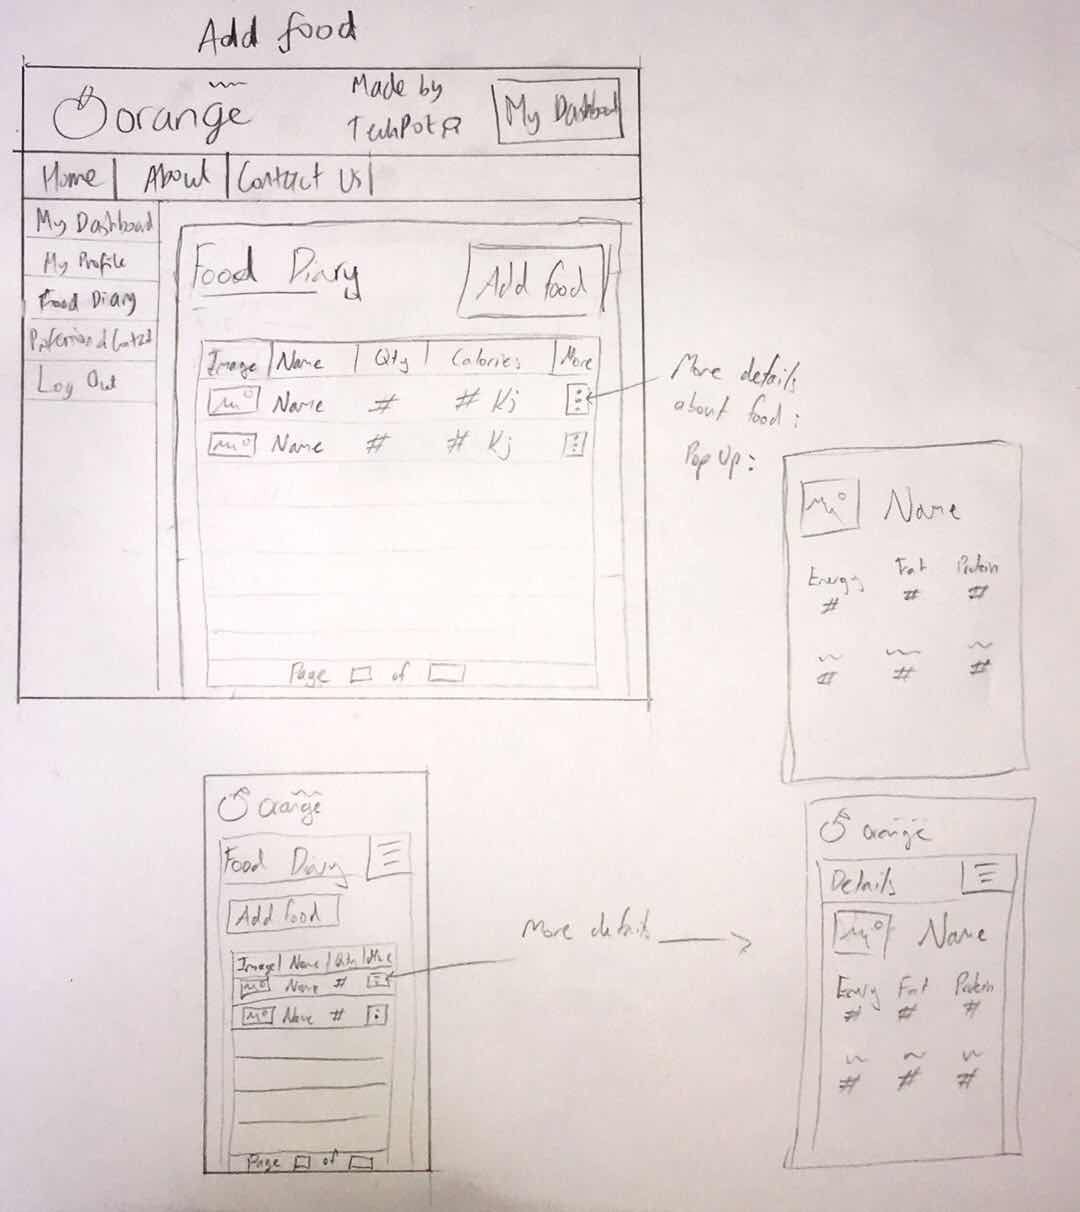 Add food
orange
Made by
TechPot
My Dashboard
Home | About | Contact Us |
My Dashboard
My Profile
Food Diary
Log Out
Food Diary
Add food
Image | Name | Qty | Calories | More
Name # # Kj
Name # # Kj
Page of
More details
about food:
Pop Up:
Name
Energy Fat Protein
# # #
# # #
orange
Food Diary
Add food
Image | Name | Qty |
Name #
Name #
Page of
More details
orange
Details
Name
Energy Fat Protein
# # #
# # #